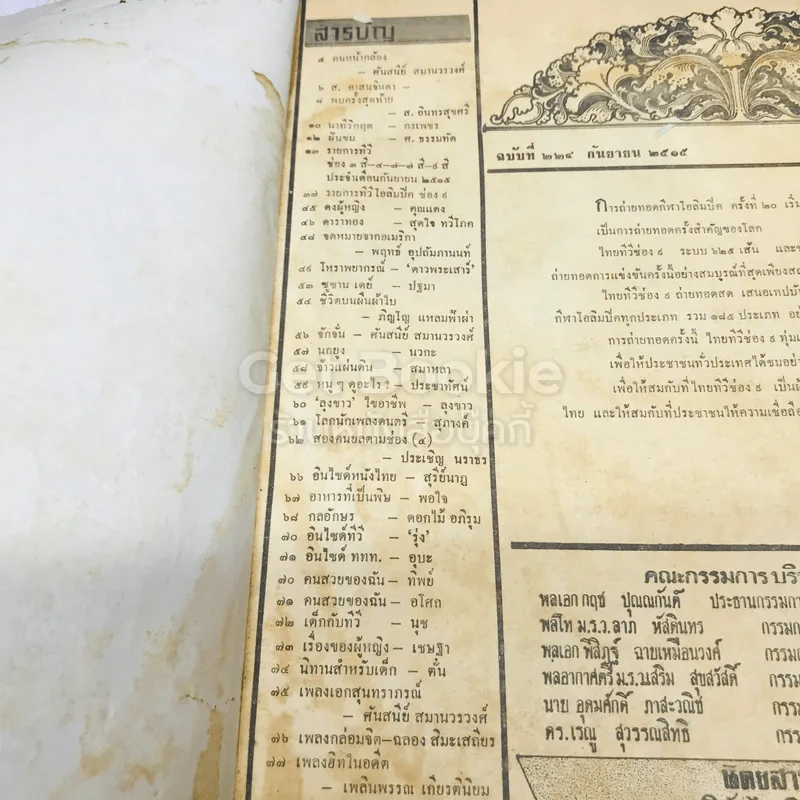 สารบัญ
๕ คนหน้ากล้อง
– ศันสนีย์ สมานวรวงศ์
๖ ส. อาสนจินดา –
๗ พบครั้งสุดท้าย
– ส. อินทรสุขศรี
๑๐ นาทีวิกฤต – กรเพชร
๑๒ ฝันขม – ศ. ธรรมทัต
๑๓ รายการทีวี
ช่อง ๓ สี–๔–๗–๗ สี–๙ สี
ประจำเดือนกันยายน ๒๕๑๕
๓๗ รายการทีวีโอลิมปิค ช่อง ๙
๔๕ ดงผู้หญิง – คุณแดง
๔๖ ดาราทอง – สุดใจ ทวีโภค
๔๘ จดหมายจากอเมริกา
– พฤทธิ์ อุปถัมภานนท์
๔๙ โหราพยากรณ์ – 'ดาวพระเสาร์'
๕๓ ซูซาน เดย์ – ปฐมา
๕๔ ชีวิตบนผืนผ้าใบ
– ภิญโญ แหลมฟ้าผ่า
๕๖ จักจั่น – ศันสนีย์ สมานวรวงศ์
๕๗ นกยูง – นวกะ
๕๘ จ้าวแผ่นดิน – สมาหลา
๕๙ หนู ๆ ดูอะไร? – ประชาทัศน์
๖๐ 'ลุงขาว' ไขอาชีพ – ลุงขาว
๖๑ โลกนักเพลงดนตรี – สุภางค์
๖๒ สองคนยลตามช่อง (๔)
– ประเชิญ นราธร
๖๖ อินไซด์หนังไทย – สุรีย์นาฏ
๖๗ อาหารที่เป็นพิษ – พอใจ
๖๘ กลอักษร – ดอกไม้ อภิรุม
๗๐ อินไซด์ทีวี – 'รุ่ง'
๗๑ อินไซด์ ททท. – อุบะ
๗๐ คนสวยของฉัน – ทิพย์
๗๑ คนสวยของฉัน – อโศก
๗๒ เด็กกับทีวี – นุช
๗๓ เรื่องของผู้หญิง – เชษฐา
๗๔ นิทานสำหรับเด็ก – ตั้น
๗๕ เพลงเอกสุนทราภรณ์
– ศันสนีย์ สมานวรวงศ์
๗๖ เพลงกล่อมจิต–ฉลอง สิมะเสถียร
๗๗ เพลงฮิทในอดีต
– เพลินพรรณ เกียรตินิยม
ฉบับที่ ๒๒๔ กันยายน ๒๕๑๕
การถ่ายทอดกีฬาโอลิมปิค ครั้งที่ ๒๐
เป็นการถ่ายทอดครั้งสำคัญของโลก
ไทยทีวีช่อง ๙ ระบบ ๖๒๕ เส้น
ถ่ายทอดการแข่งขันครั้งนี้อย่างสมบูรณ์ที่สุดเพียง
ไทยทีวีช่อง ๙ ถ่ายทอดสด เสนอเทป
กีฬาโอลิมปิคทุกประเภท รวม ๑๘๕ ประเภท
การถ่ายทอดครั้งนี้ ไทยทีวีช่อง ๙ ทุ่ม
เพื่อให้ประชาชนทั่วประเทศได้ชม
เพื่อให้สมกับที่ไทยทีวีช่อง ๙
ไทย และให้สมกับที่ประชาชนให้ความเชื่อถือ
คณะกรรมการ
พลเอก กฤช ปุณณกันต์ ประธานกรรมการ
พลโท ม.ร.ว.ลาภ หัสดินทร
พลเอก พิสิฎฐ์ ฉายเหมือนวงศ์
พลอากาศตรี ม.ร.ว.เสริม สุขสวัสดิ์
นาย อุดมศักดิ์ ภาสะวณิช
ดร.เรณู สุวรรณสิทธิ
Cat Bookie
ร้านหนังสือบุ๊คกี้